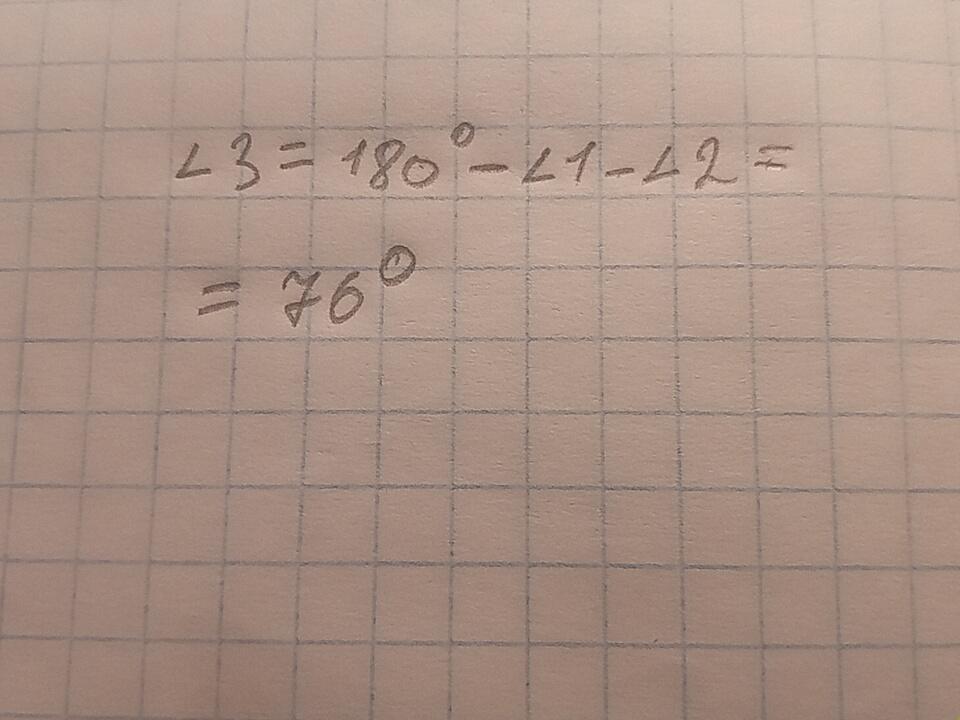 ∠3 = 180° - ∠1 - ∠2 =
= 76°